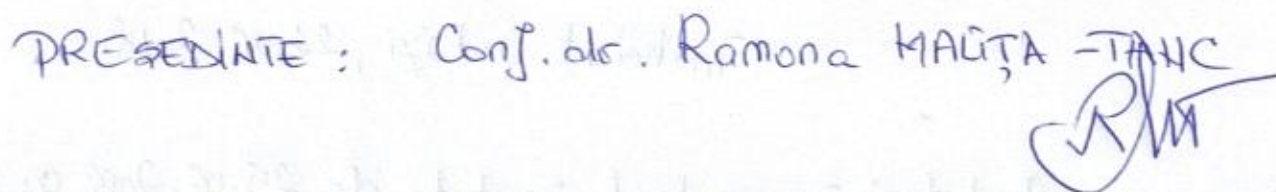 PREȘEDINTE : Conf. dr. Ramona MALIȚA -TANC